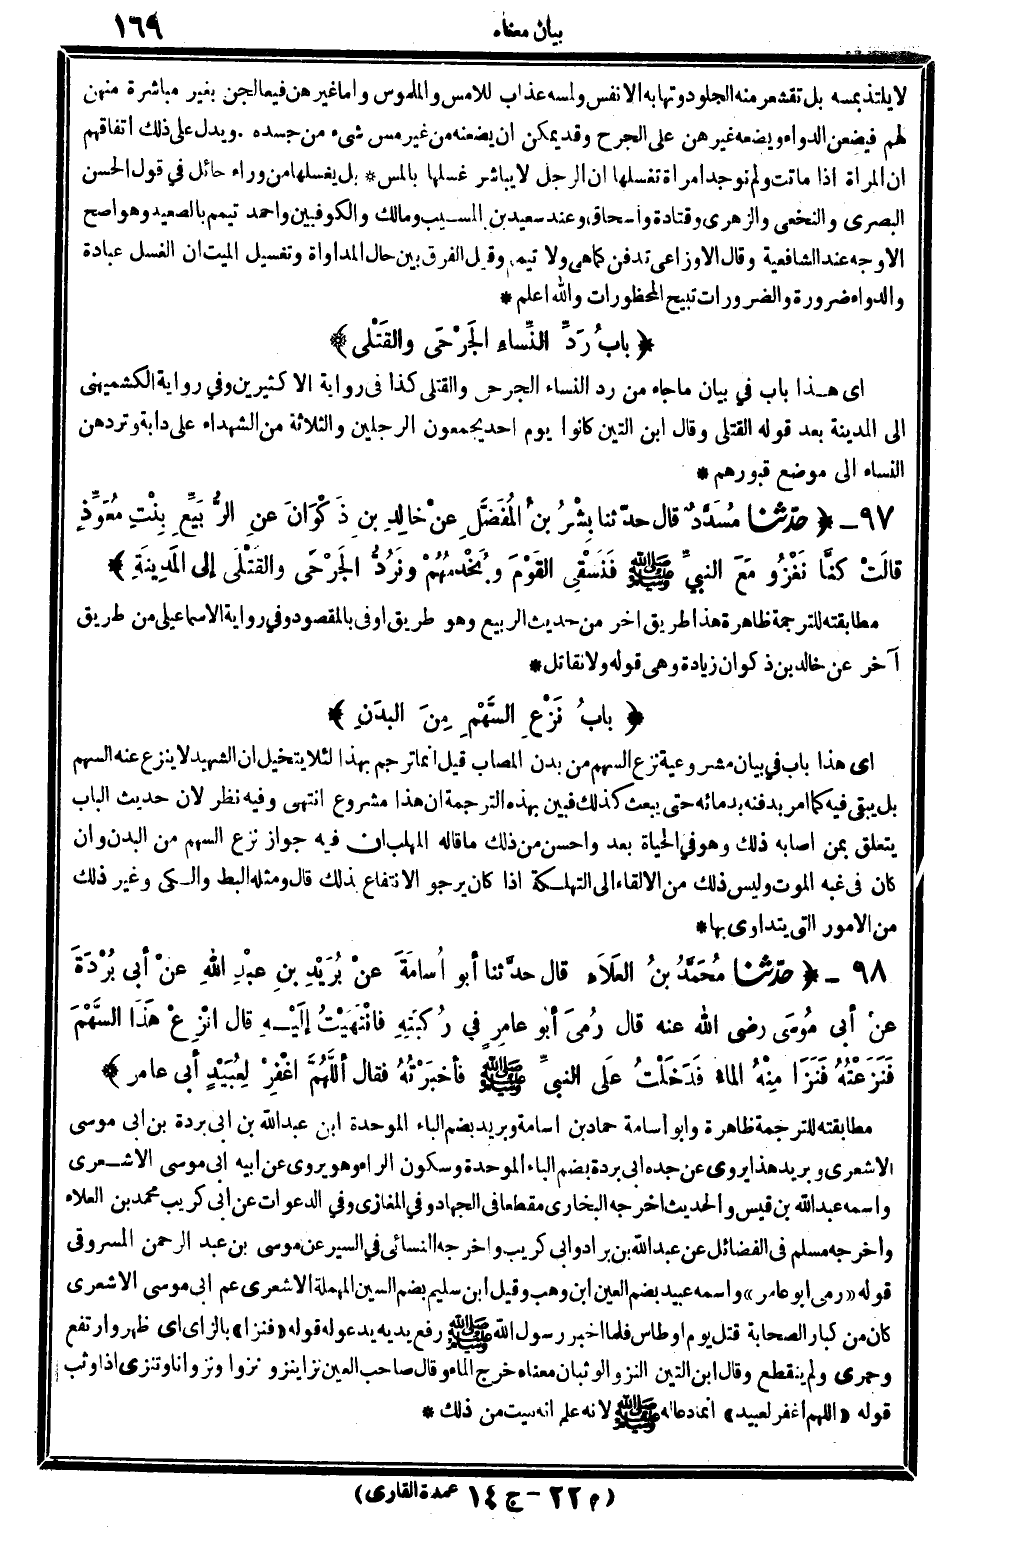 بيان معناه ١٦٩
لا يلتذ بمسه بل تقشعر منه الجلود وتهابه الانفس ولمسه عذاب للامس والملموس واما غيرهن فيعالجن بغير مباشرة منهن
لهم فيضعن الدواء ويضعه غيرهن على الجرح وقد يمكن ان يضعنه من غير مس شىء من جسده . ويدل على ذلك اتفاقهم
ان المراة اذا ماتت ولم توجد امراة تغسلها ان الرجل لا يباشر غسلها بالمس * بل يغسلها من وراء حائل في قول الحسن
البصرى والنخعى والزهرى وقتادة واسحاق وعند سعيد بن المسيب ومالك والكوفيين واحمد تيمم بالصعيد وهو اصح
الاوجه عند الشافعية وقال الاوزاعى تدفن كما هى ولا تيمم وقيل الفرق بين حال المداواة وتغسيل الميت ان الغسل عبادة
والدواء ضرورة والضرورات تبيح المحظورات والله اعلم *
﴿ بابُ رَدِّ النِّساءِ الجَرْحَى والقَتْلى ﴾
اى هـذا باب في بيان ماجاء من رد النساء الجرحى والقتلى كذا فى رواية الاكثرين وفي رواية الكشميهنى
الى المدينة بعد قوله القتلى وقال ابن التين كانوا يوم احد يجمعون الرجلين والثلاثة من الشهداء على دابة وتردهن
النساء الى موضع قبورهم *
٩٧ــ ﴿ حدّثنا مُسَدَّدٌ قال حدّثنا بِشْرُ بنُ المُفَضَّلِ عنْ خالِدِ بنِ ذَكْوَانَ عنِ الرُّبَيِّعِ بِنْتِ مُعَوِّذٍ
قالَتْ كنَّا نَغْزُو مَعَ النبيِّ ﷺ فَنَسْقِى القَوْمَ وَنَخْدُمُهُمْ ونَرُدُّ الجَرْحَى والقَتْلَى إلى المَدِينَةِ ﴾
مطابقته للترجمة ظاهرة هذا طريق اخر من حديث الربيع وهو طريق اوفى بالمقصود وفي رواية الاسماعيلى من طريق
آخر عن خالد بن ذكوان زيادة وهى قوله ولا نقاتل *
﴿ بابُ نَزْعِ السَّهْمِ مِنَ البَدَنِ ﴾
اى هذا باب في بيان مشروعية نزع السهم من بدن المصاب قيل انما ترجم بهذا لئلا يتخيل ان الشهيد لا ينزع عنه السهم
بل يبقى فيه كما امر بدفنه بدمائه حتى يبعث كذلك فبين بهذه الترجمة ان هذا مشروع انتهى وفيه نظر لان حديث الباب
يتعلق بمن اصابه ذلك وهو في الحياة بعد واحسن من ذلك ما قاله المهلب ان فيه جواز نزع السهم من البدن وان
كان فى غبه الموت وليس ذلك من الالقاء الى التهلـكة اذا كان يرجو الانتفاع بذلك قال ومثله البط والـكى وغير ذلك
من الامور التى يتداوى بها *
٩٨ ــ ﴿ حدّثنا مُحَمَّدُ بنُ العَلاَءِ قال حدّثنا أبو أُسامَةَ عنْ بُرَيْدِ بنِ عبْدِ اللهِ عنْ أبى بُرْدَةَ
عنْ أبى مُوسَى رضى الله عنه قال رُمِىَ أبُو عامِرٍ في رُكْبَتِهِ فانْتَهَيْتُ إلَيْـهِ قال انْزِعْ هَذَا السَّهْمَ
فَنَزَعْتُهُ فَنَزَا مِنْهُ الماءُ فَدَخَلْتُ عَلَى النبيِّ ﷺ فأخبَرْتُهُ فقال أللَّهُمَّ اغْفِرْ لِعُبَيْدٍ أبى عامر ﴾
مطابقته للترجمة ظاهرة وابو أسامة حماد بن اسامة وبريد بضم الباء الموحدة ابن عبدالله بن ابى بردة بن ابى موسى
الاشعرى وبريد هذا يروى عن جده ابى بردة بضم الباء الموحدة وسكون الراء وهو يروى عن ابيه ابى موسى الاشـعرى
واسمه عبدالله بن قيس والحديث اخرجه البخارى مقطعا فى الجهاد وفي المغازى وفي الدعوات عن ابى كريب محمد بن العلاء
واخرجه مسلم فى الفضائل عن عبدالله بن براد وابى كريب واخرجه النسائى في السير عن موسى بن عبد الرحمن المسروقى
قوله «رمى ابو عامر» واسمه عبيد بضم العين ابن وهب وقيل ابن سليم بضم السين المهملة الاشعرى عم ابى موسى الاشعرى
كان من كبار الصحابة قتل يوم اوطاس فلما اخبر رسول الله ﷺ رفع يديه يدعو له قوله «فنزا» بالزاى اى ظهر وارتفع
وجرى ولم ينقطع وقال ابن التين النزو الوثبان معناه خرج الماء وقال صاحب العين نزا ينزو نزوا ونزوانا وتنزى اذا وثب
قوله «اللهم أغفر لعبيد» انما دعا له ﷺ لانه علم انه ميت من ذلك *
(م ٢٢ - ج ١٤ عمدة القارى)